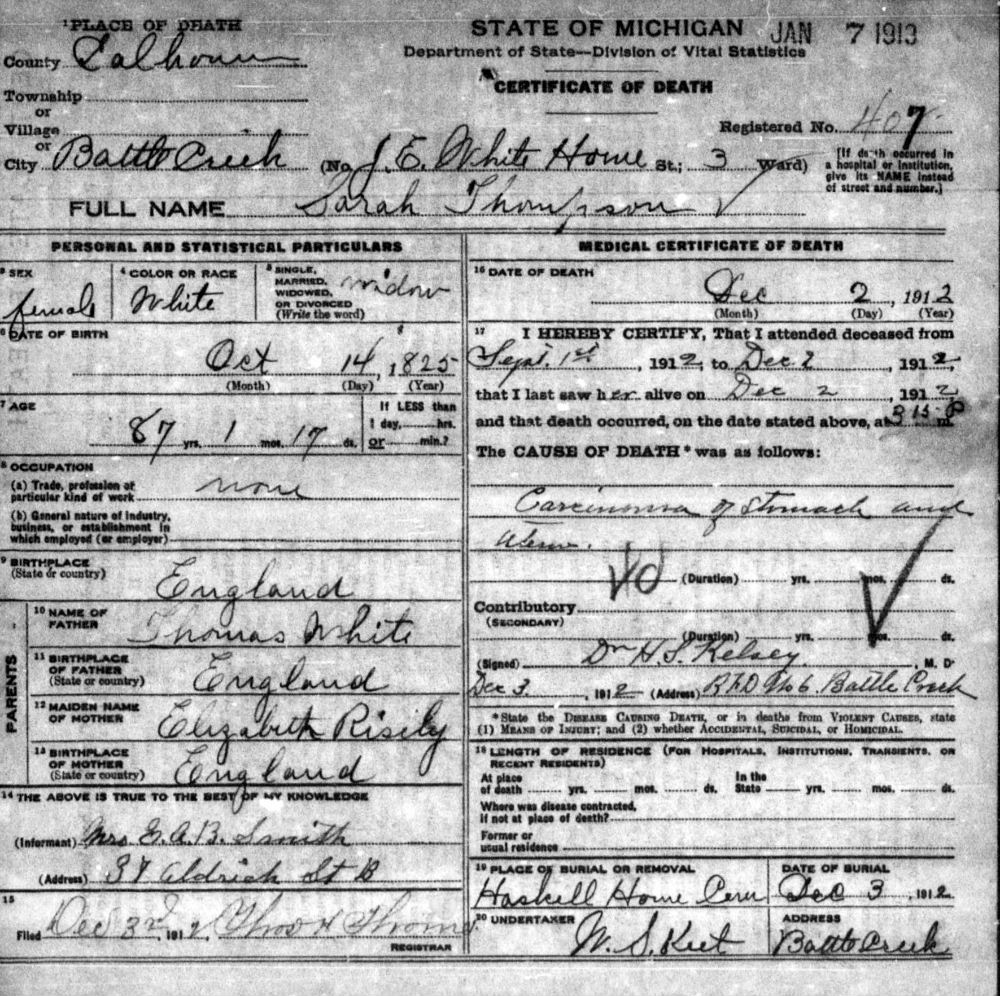 ¹PLACE OF DEATH
STATE OF MICHIGAN
JAN 7 1913
County Calhoun
Department of State—Division of Vital Statistics
CERTIFICATE OF DEATH
Township
or
Village
or
Registered No. 407
City Battle Creek (No. J. E. White Home St.; 3 Ward)
[If death occurred in
a hospital or institution,
give its NAME instead
of street and number.]
FULL NAME Sarah Thompson
PERSONAL AND STATISTICAL PARTICULARS
³ SEX
female
⁴ COLOR OR RACE
White
⁵ SINGLE,
MARRIED,
WIDOWED,
OR DIVORCED
(Write the word)
widow
⁶ DATE OF BIRTH
Oct 14, 1825
(Month) (Day) (Year)
⁷ AGE
87 yrs. 1 mos. 17 ds.
If LESS than
1 day, hrs.
or min.?
⁸ OCCUPATION
(a) Trade, profession or
particular kind of work none
(b) General nature of industry,
business, or establishment in
which employed (or employer)
⁹ BIRTHPLACE
(State or country)
England
PARENTS
¹⁰ NAME OF
FATHER
Thomas White
¹¹ BIRTHPLACE
OF FATHER
(State or country)
England
¹² MAIDEN NAME
OF MOTHER
Elizabeth Risily
¹³ BIRTHPLACE
OF MOTHER
(State or country)
England
¹⁴ THE ABOVE IS TRUE TO THE BEST OF MY KNOWLEDGE
(Informant) Mrs. G. A. B. Smith
(Address) 37 Aldrich St B
15
Filed Dec 3rd, 1912 Thos H Thorne
REGISTRAR
MEDICAL CERTIFICATE OF DEATH
¹⁶ DATE OF DEATH
Dec 2, 1912
(Month) (Day) (Year)
¹⁷ I HEREBY CERTIFY, That I attended deceased from
Sept. 1st, 1912, to Dec 2, 1912,
that I last saw her alive on Dec 2, 1912,
and that death occurred, on the date stated above, at 3 15 P m.
The CAUSE OF DEATH* was as follows:
Carcinoma of Stomach and
40
(Duration) yrs. mos. ds.
Contributory
(SECONDARY)
(Duration) yrs. mos. ds.
(Signed) Dr H. S. Kelsey, M. D.
Dec 3, 1912 (Address) RFD No 6. Battle Creek
*State the DISEASE CAUSING DEATH, or in deaths from VIOLENT CAUSES, state
(1) MEANS OF INJURY; and (2) whether ACCIDENTAL, SUICIDAL, or HOMICIDAL.
¹⁸ LENGTH OF RESIDENCE (FOR HOSPITALS, INSTITUTIONS, TRANSIENTS, OR
RECENT RESIDENTS)
At place
of death yrs. mos. ds.
In the
State yrs. mos. ds.
Where was disease contracted,
if not at place of death?
Former or
usual residence
¹⁹ PLACE OF BURIAL OR REMOVAL
Haskell Home Cem
DATE OF BURIAL
Dec 3, 1912
²⁰ UNDERTAKER
W. S. Keet
ADDRESS
Battle Creek